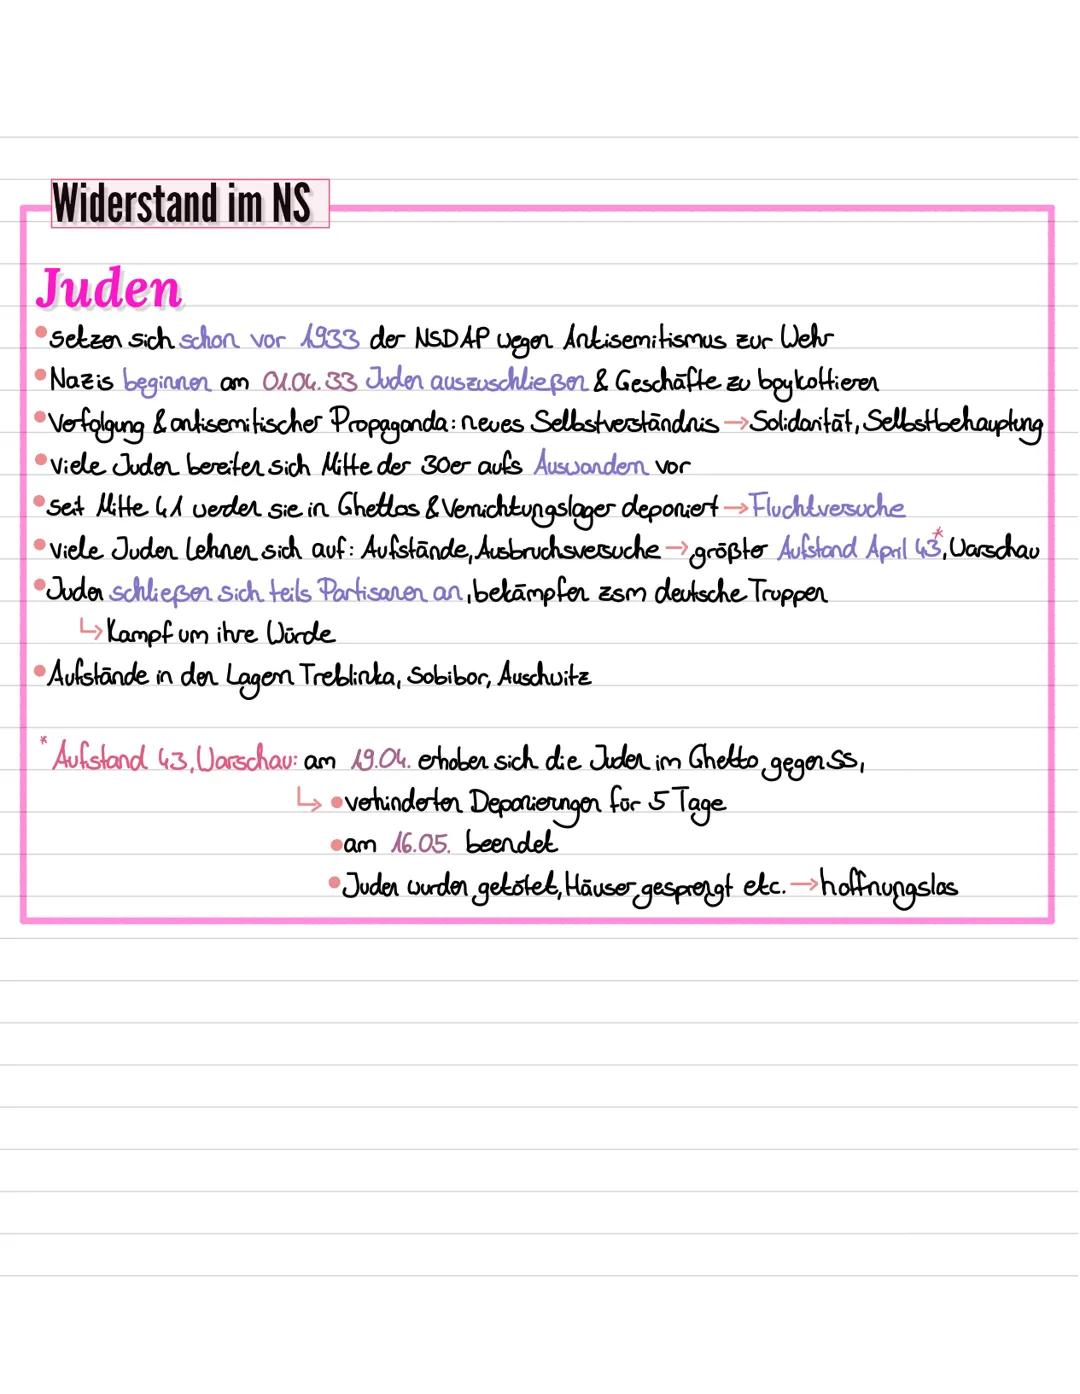 Widerstand im NS
Juden
• setzen sich schon vor 1933 der NSDAP wegen Antisemitismus zur Wehr
• Nazis beginnen am 01.04.33 Juden auszuschließen & Geschäfte zu boykottieren
• Verfolgung & antisemitischer Propaganda: neues Selbstverständnis → Solidarität, Selbstbehauptung
• viele Juden bereiten sich Mitte der 30er aufs Auswandern vor
• seit Mitte 41 werden sie in Ghettos & Vernichtungslager deponiert → Fluchtversuche
• viele Juden lehnen sich auf: Aufstände, Ausbruchsversuche → größter Aufstand April 43*, Warschau
• Juden schließen sich teils Partisanen an, bekämpfen zsm deutsche Truppen
↳ Kampf um ihre Würde
• Aufstände in den Lagern Treblinka, Sobibor, Auschwitz
* Aufstand 43, Warschau: am 19.04. erhoben sich die Juden im Ghetto gegen SS,
↳ • verhinderten Deponierungen für 5 Tage
• am 16.05. beendet
• Juden wurden getötet, Häuser gesprengt etc. → hoffnungslos